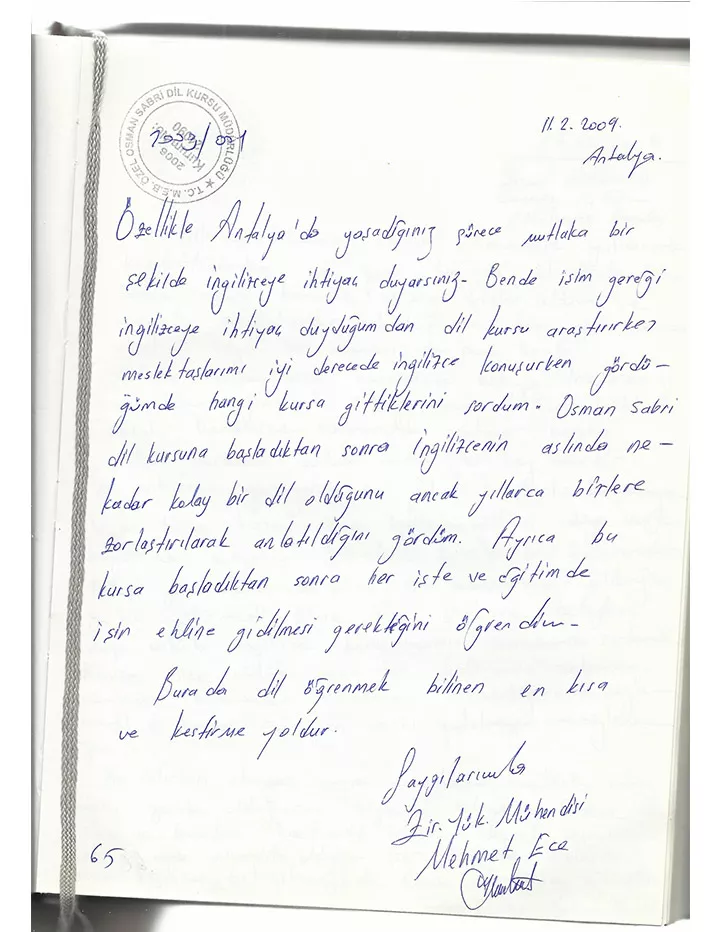 T.C. M.E.B. ÖZEL OSMAN SABRİ DİL KURSU MÜDÜRLÜĞÜ
11.2.2009.
Antalya.
Özellikle Antalya'da yaşadığınız sürece mutlaka bir
şekilde ingilizceye ihtiyaç duyarsınız. Bende işim gereği
ingilizceye ihtiyaç duyduğumdan dil kursu araştırırken
meslektaşlarımı iyi derecede ingilizce konuşurken gördü-
ğümde hangi kursa gittiklerini sordum. Osman Sabri
dil kursuna başladıktan sonra İngilizcenin aslında ne-
kadar kolay bir dil olduğunu ancak yıllarca bizlere
zorlaştırılarak anlatıldığını gördüm. Ayrıca bu
kursa başladıktan sonra her işte ve eğitimde
işin ehline gidilmesi gerektiğini öğrendim.
Burada dil öğrenmek bilinen en kısa
ve kestirme yoldur.
Saygılarımla
Zir. Yük. Mühendisi
Mehmet Ece
65